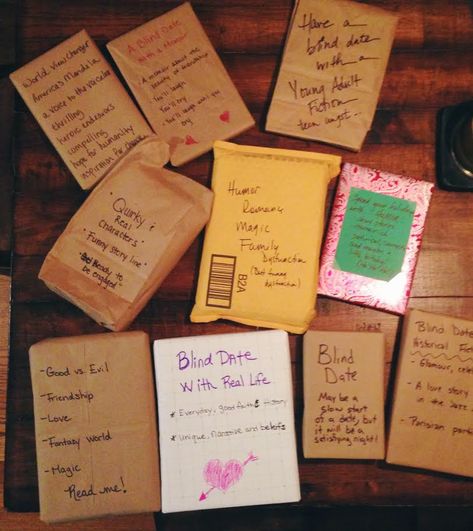 World View Changer
America's Mandela
a voice to the voiceless
thrilling
heroic endeavors
compelling
hope for humanity
inspiration for
A Blind Date
With a Memoir
A memoir about the
of friendship
You'll laugh
You'll cry
You'll laugh until you
cry
Have a
blind date
with a
Young Adult
Fiction
teen angst...
"Quirky &
Real
Characters"
"Funny story line"
Ready to
be engaged"
Humor
Romance
Magic
Family
Dysfunction
(But funny
dysfunction)
B2A
with a
love stories
historical
political
and maybe a
- Good vs. Evil
- Friendship
- Love
- Fantasy World
- Magic
Read me!
Blind Date
With Real Life
* Everyday, good faith & history
* Unique, narrative and beliefs
Blind
Date
May be a
slow start
of a date, but
it will be a
satisfying night!
Blind Date
Historical Fic
- Glamour, cele
- A love story
in the Jazz
- Parisian part